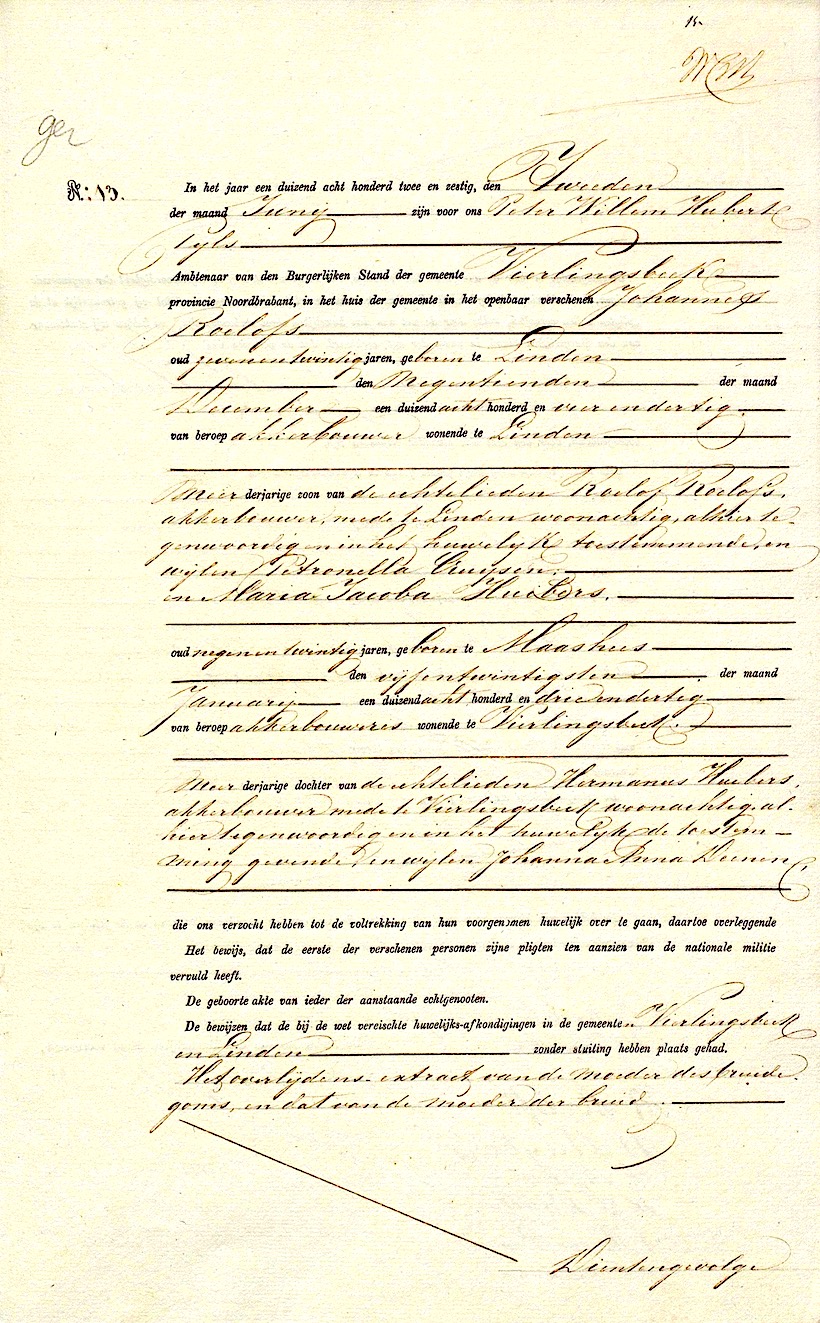 15
ger
N.: 13.
In het jaar een duizend acht honderd twee en zestig, den Tweeden
der maand Junij zijn voor ons Peter Willem Hubert
Tyls
Ambtenaar van den Burgerlijken Stand der gemeente Vierlingsbeek
provincie Noordbrabant, in het huis der gemeente in het openbaar verschenen Johannes
Roelofs
oud zevenentwintig jaren, geboren te Linden
den Negentienden der maand
December een duizend acht honderd en vier en dertig
van beroep akkerbouwer wonende te Linden
Meer derjarige zoon van de echtelieden Roelof Roelofs,
akkerbouwer, mede te Linden woonachtig, alhier te-
genwoordig en in het huwelyk toestemmende, en
wijlen Petronella Cruysen.
en Maria Jacoba Huibers.
oud negenentwintig jaren, geboren te Maashees
den vijfentwintigsten der maand
Januarij een duizend acht honderd en drie en dertig
van beroep akkerbouweres wonende te Vierlingsbeek
Meer derjarige dochter van de echtelieden Hermanus Huibers,
akkerbouwer mede te Vierlingsbeek woonachtig, al-
hier tegenwoordig en in het huwelyk de toestem-
ming gevende, en wijlen Johanna Anna Deenen,
die ons verzocht hebben tot de voltrekking van hun voorgenomen huwelijk over te gaan, daartoe overleggende
Het bewijs, dat de eerste der verschenen personen zijne pligten ten aanzien van de nationale militie
vervuld heeft.
De geboorte akte van ieder der aanstaande echtgenooten.
De bewijzen dat de bij de wet vereischte huwelijks-afkondigingen in de gemeenten Vierlingsbeek
en Linden zonder stuiting hebben plaats gehad.
Het overlijdens-extract van de moeder des bruide-
goms, en dat van de moeder der bruid.
Dientengevolge